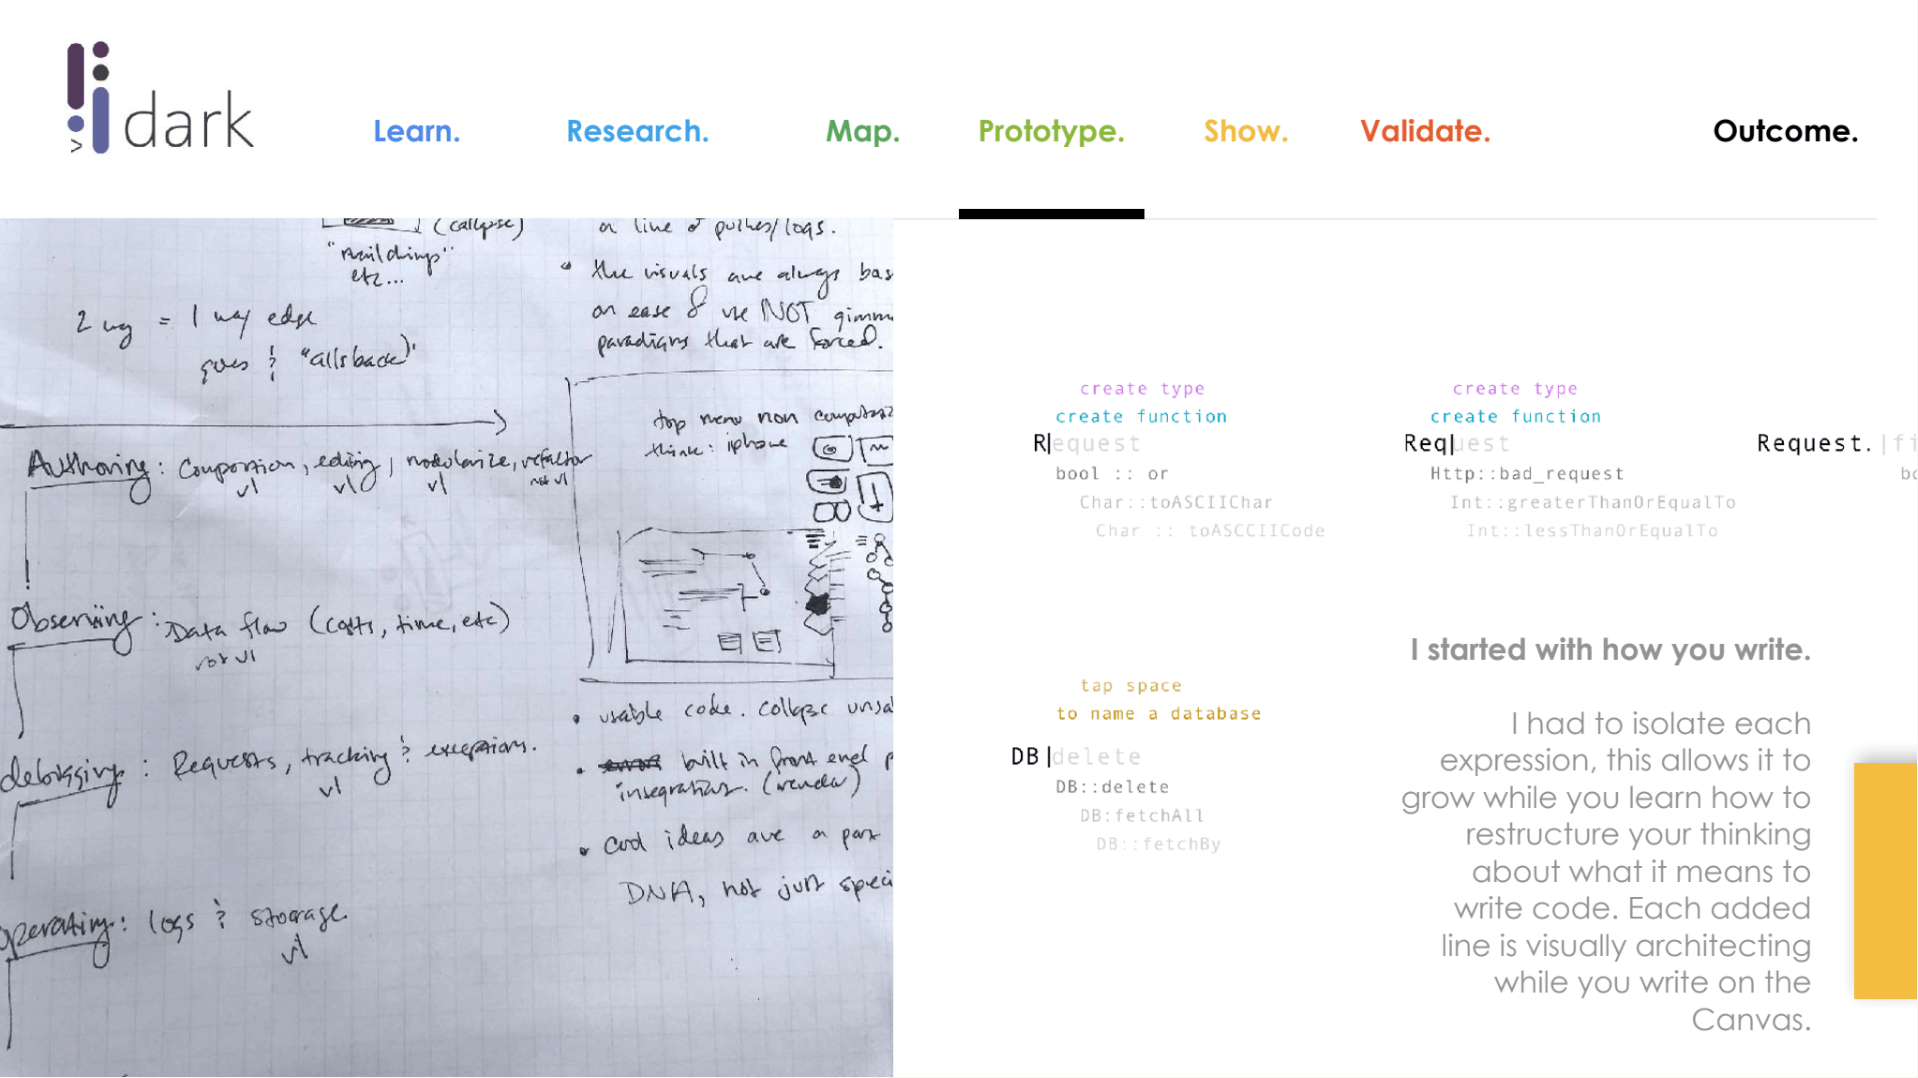 dark
Learn.
Research.
Map.
Prototype.
Show.
Validate.
Outcome.
(collapse)
"
etc...
2 way = 1 way edge
goes & "calls back"
Authoring: Composition, editing, modularize, refactor
v1 v1 v1 not v1
Observing: Data flow (costs, time, etc)
not v1
debugging: Requests, tracking & exceptions.
v1
operating: logs & storage.
v1
on line of pushes/logs.
• the visuals are always bas
on ease of use NOT gimm
paradigms that are forced.
top menu non
think: iphone
• usable code. collapse
• built in front end p
integration. (render)
• Cool ideas are a part
DNA, not just speci
create type
create function
R|equest
bool :: or
Char::toASCIIChar
Char :: toASCCIICode
create type
create function
Req|uest
Http::bad_request
Int::greaterThanOrEqualTo
Int::lessThanOrEqualTo
Request.|fi
bo
tap space
to name a database
DB |delete
DB::delete
DB:fetchAll
DB::fetchBy
I started with how you write.
I had to isolate each
expression, this allows it to
grow while you learn how to
restructure your thinking
about what it means to
write code. Each added
line is visually architecting
while you write on the
Canvas.